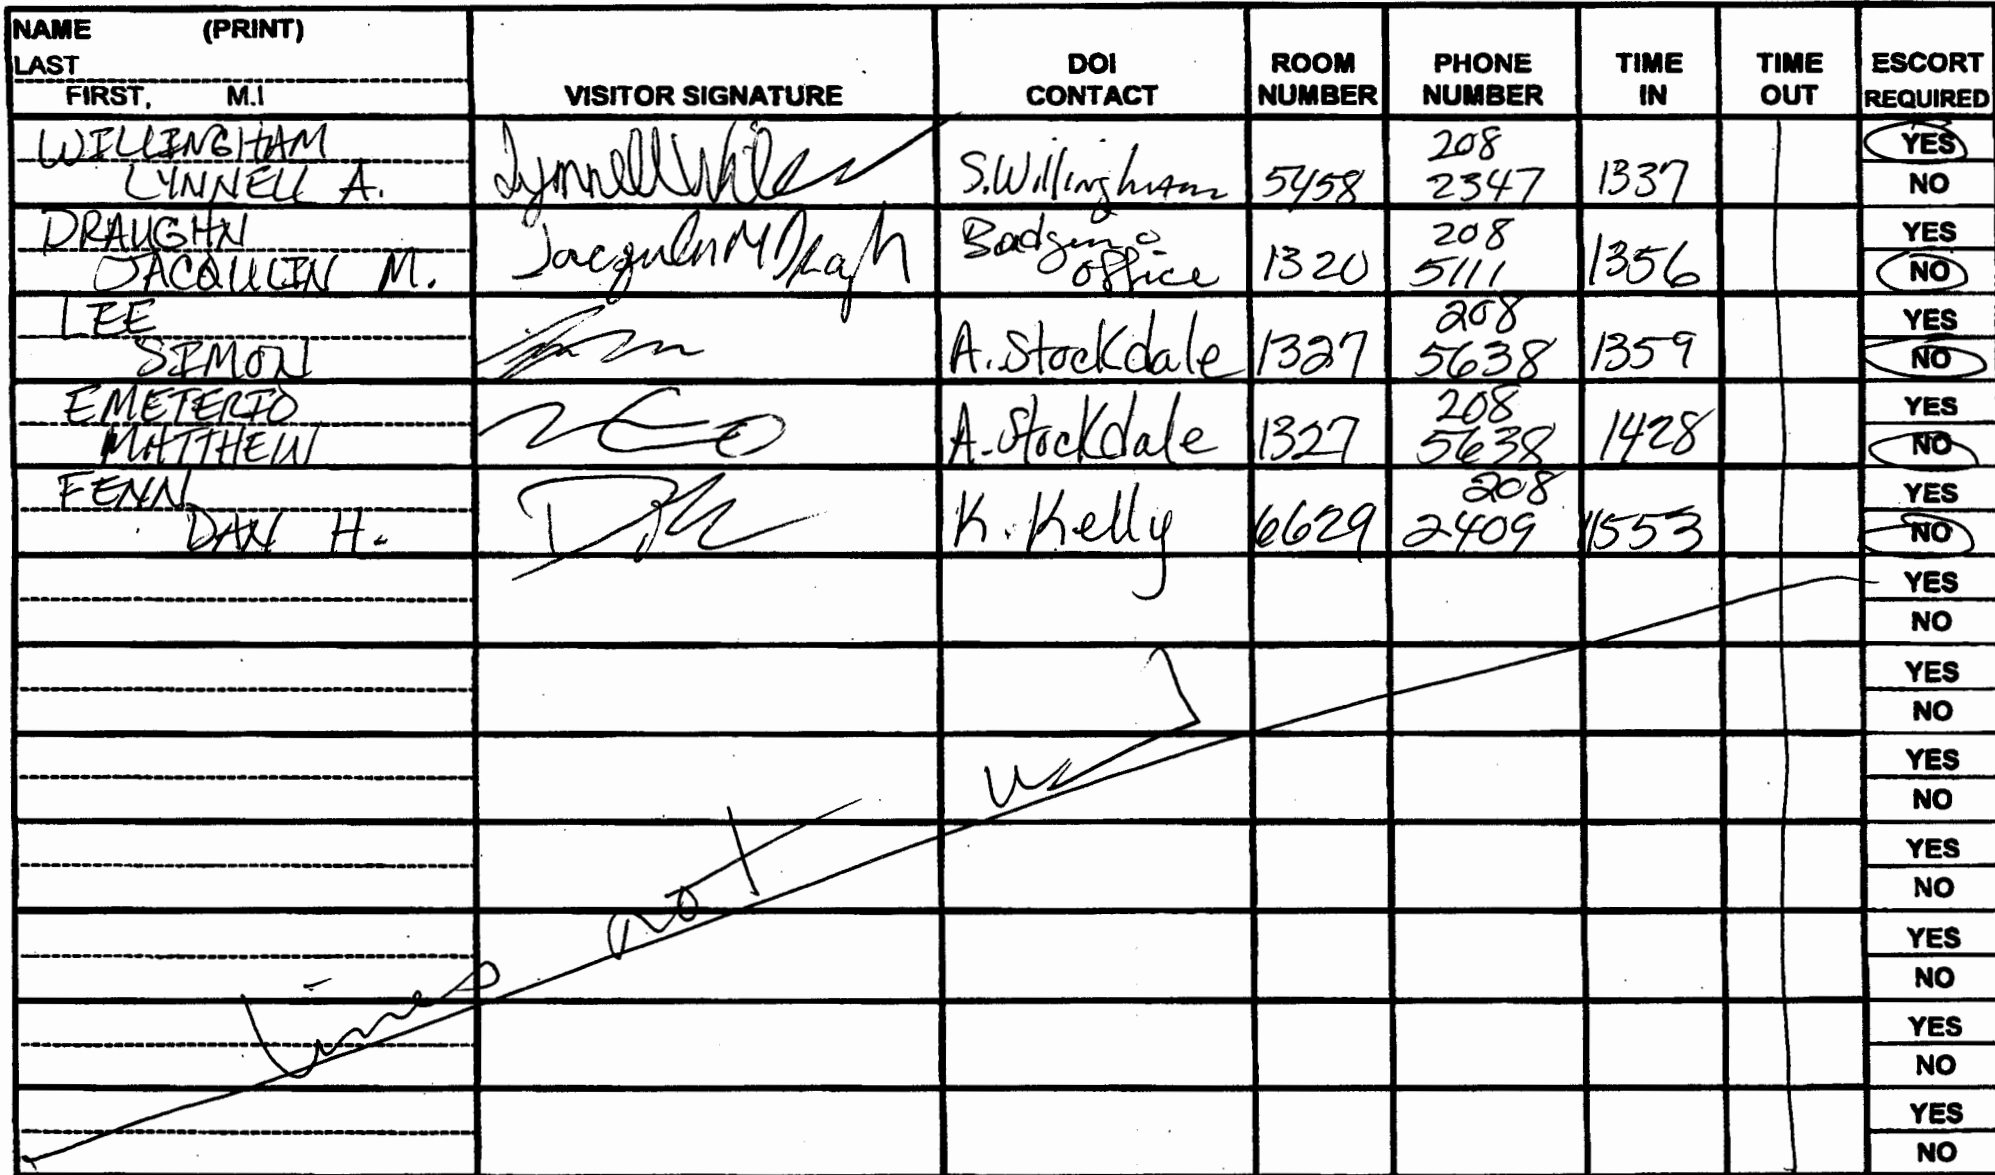 NAME (PRINT)
LAST
FIRST, M.I
VISITOR SIGNATURE
DOI
CONTACT
ROOM
NUMBER
PHONE
NUMBER
TIME
IN
TIME
OUT
ESCORT
REQUIRED
WILLINGHAM
LYNNELL A.
Lynnell
S. Willingham
5458
208
2347
1337
YES
NO
DRAUGHN
JACQULIN M.
Badging
office
1320
208
5111
1356
YES
NO
LEE
SIMON
A. Stockdale
1327
208
5638
1359
YES
NO
EMETERIO
MATTHEW
A. Stockdale
1327
208
5638
1428
YES
NO
FENN
DAN H.
K. Kelly
6629
208
2409
1553
YES
NO
YES
NO
YES
NO
YES
NO
YES
NO
YES
NO
YES
NO
YES
NO
Lines not